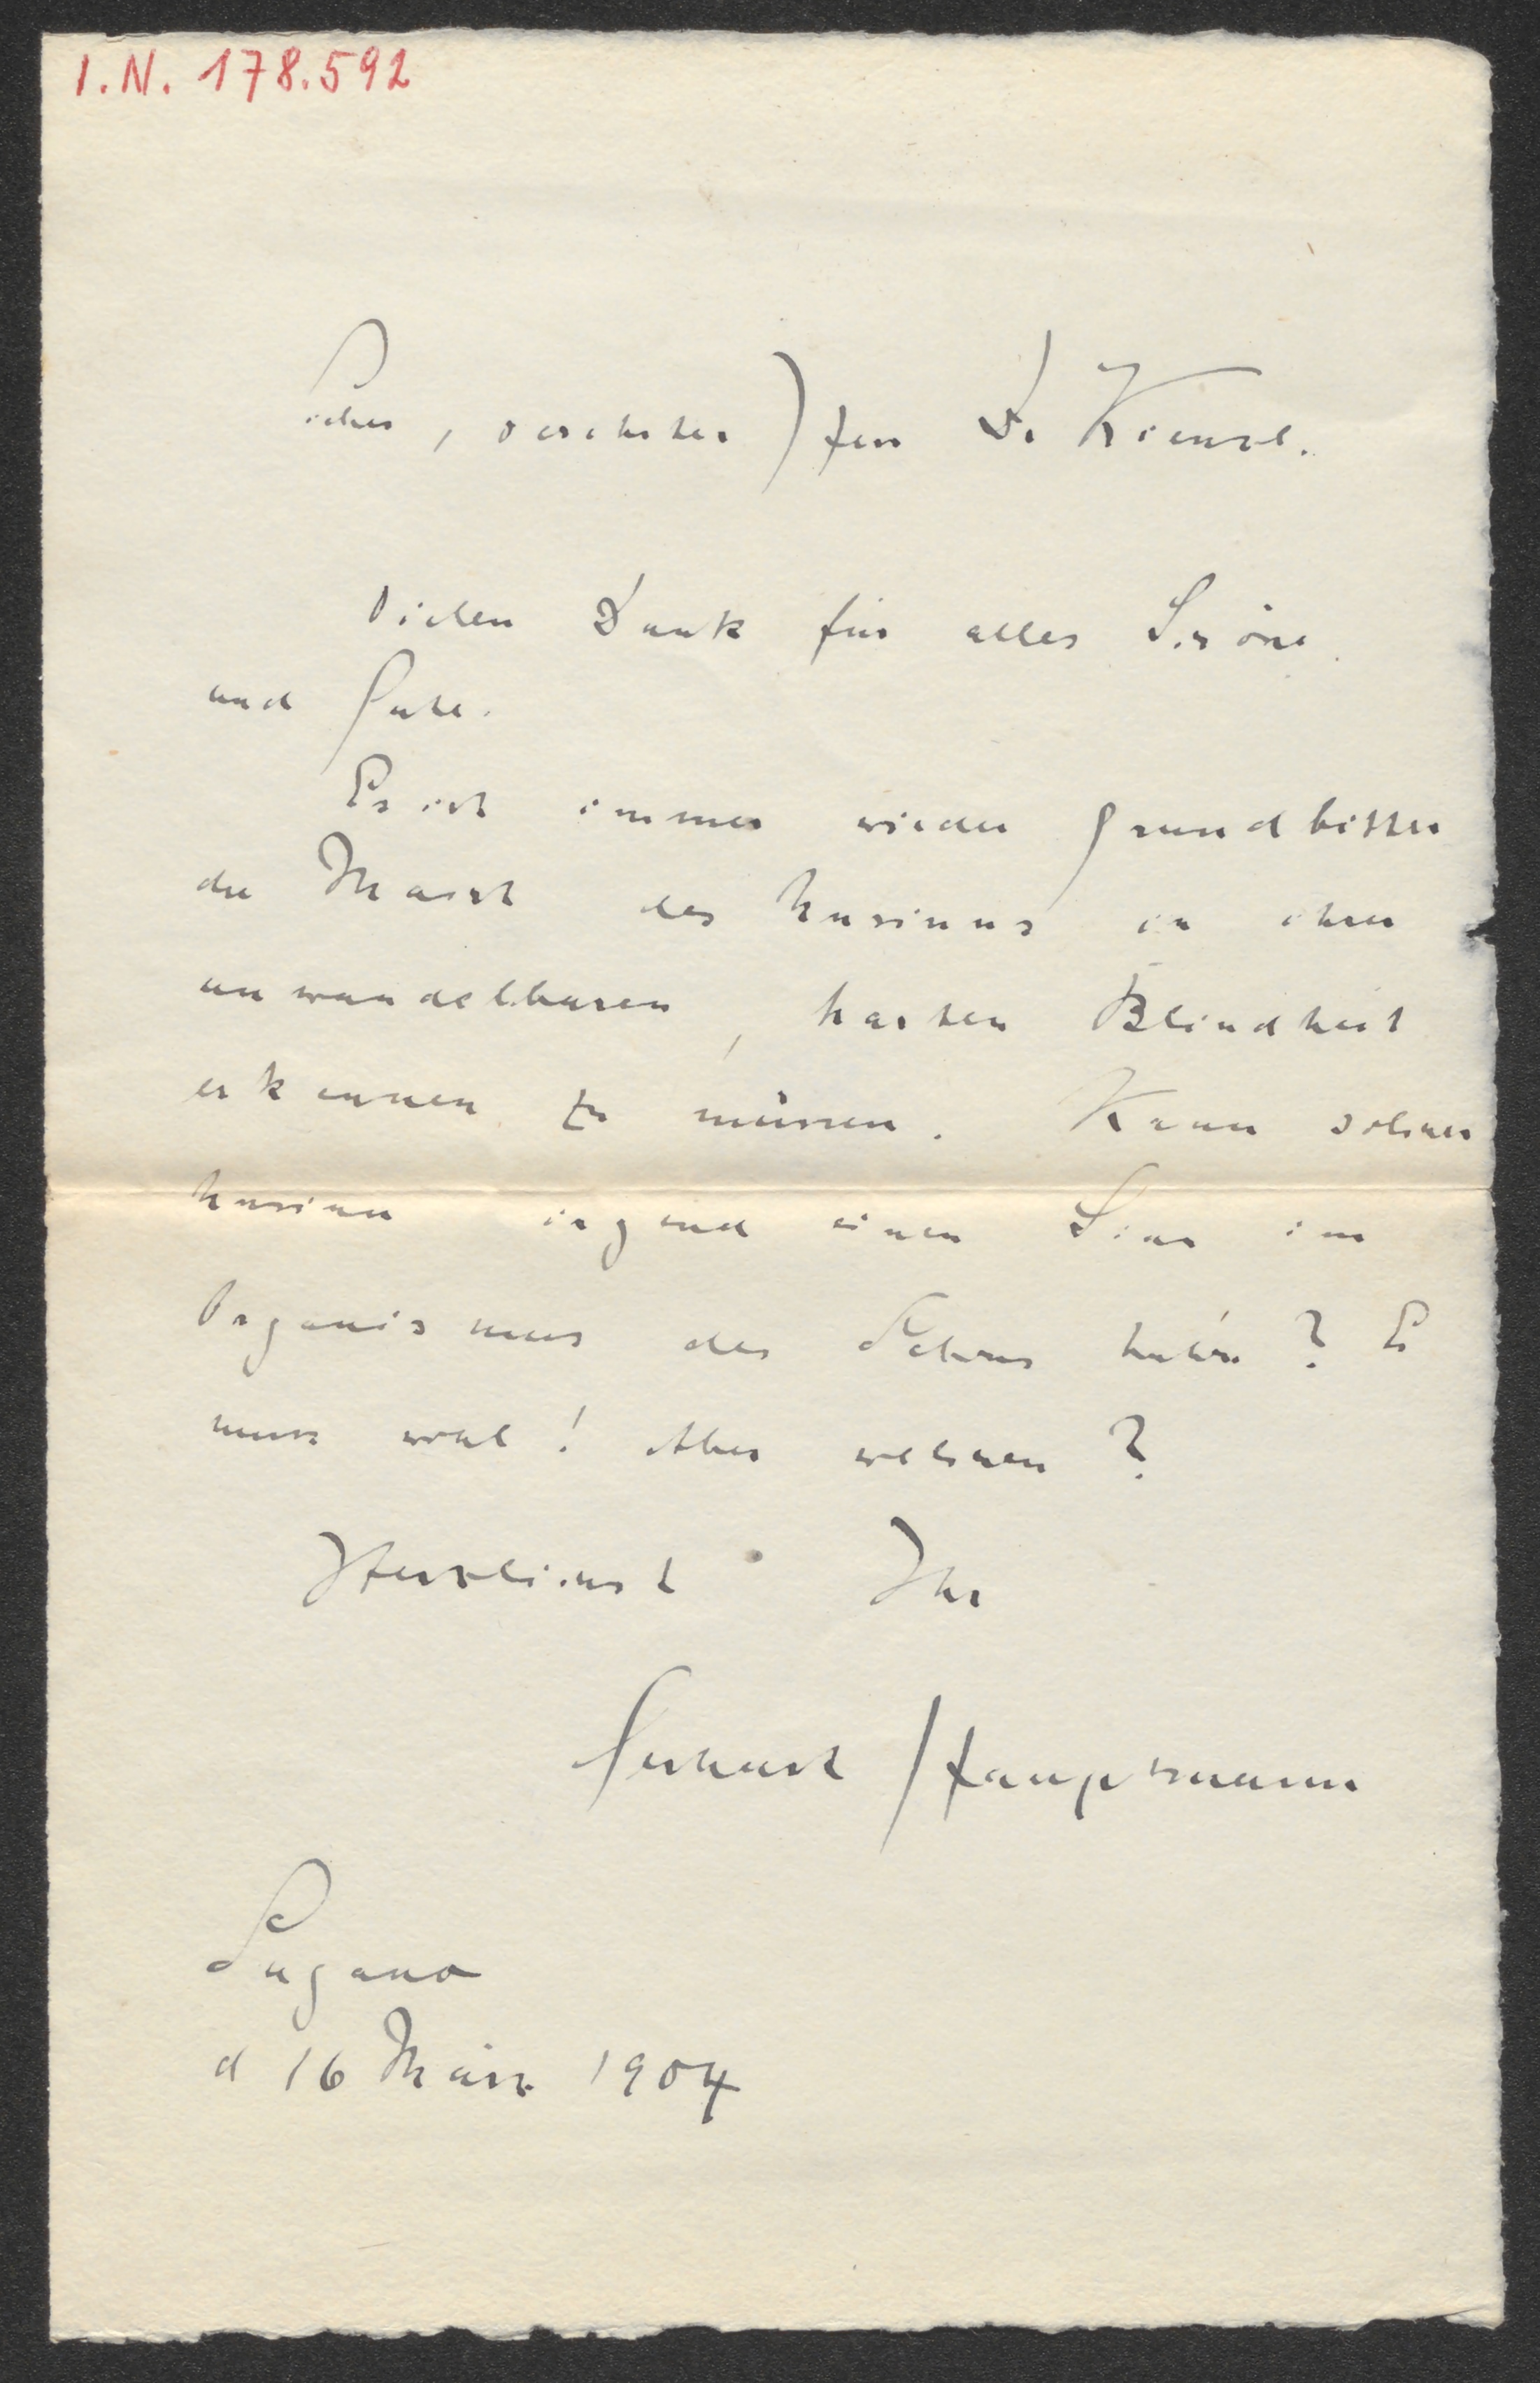 I.N. 178.592
Lieber, verehrter Herr Dr Kienzl.
Vielen Dank für alles Schöne
und Gute.
Es ist immer wieder grundbitter
die Macht des Unsinns in ihrer
unwandelbaren, harten Blindheit
erkennen zu müssen. Kann solcher
Unsinn irgend einen Sinn im
Organismus des Lebens haben? Er
muss wohl! Aber welchen?
Herzlichst Ihr
Gerhart Hauptmann
Lugano
d 16 März 1904